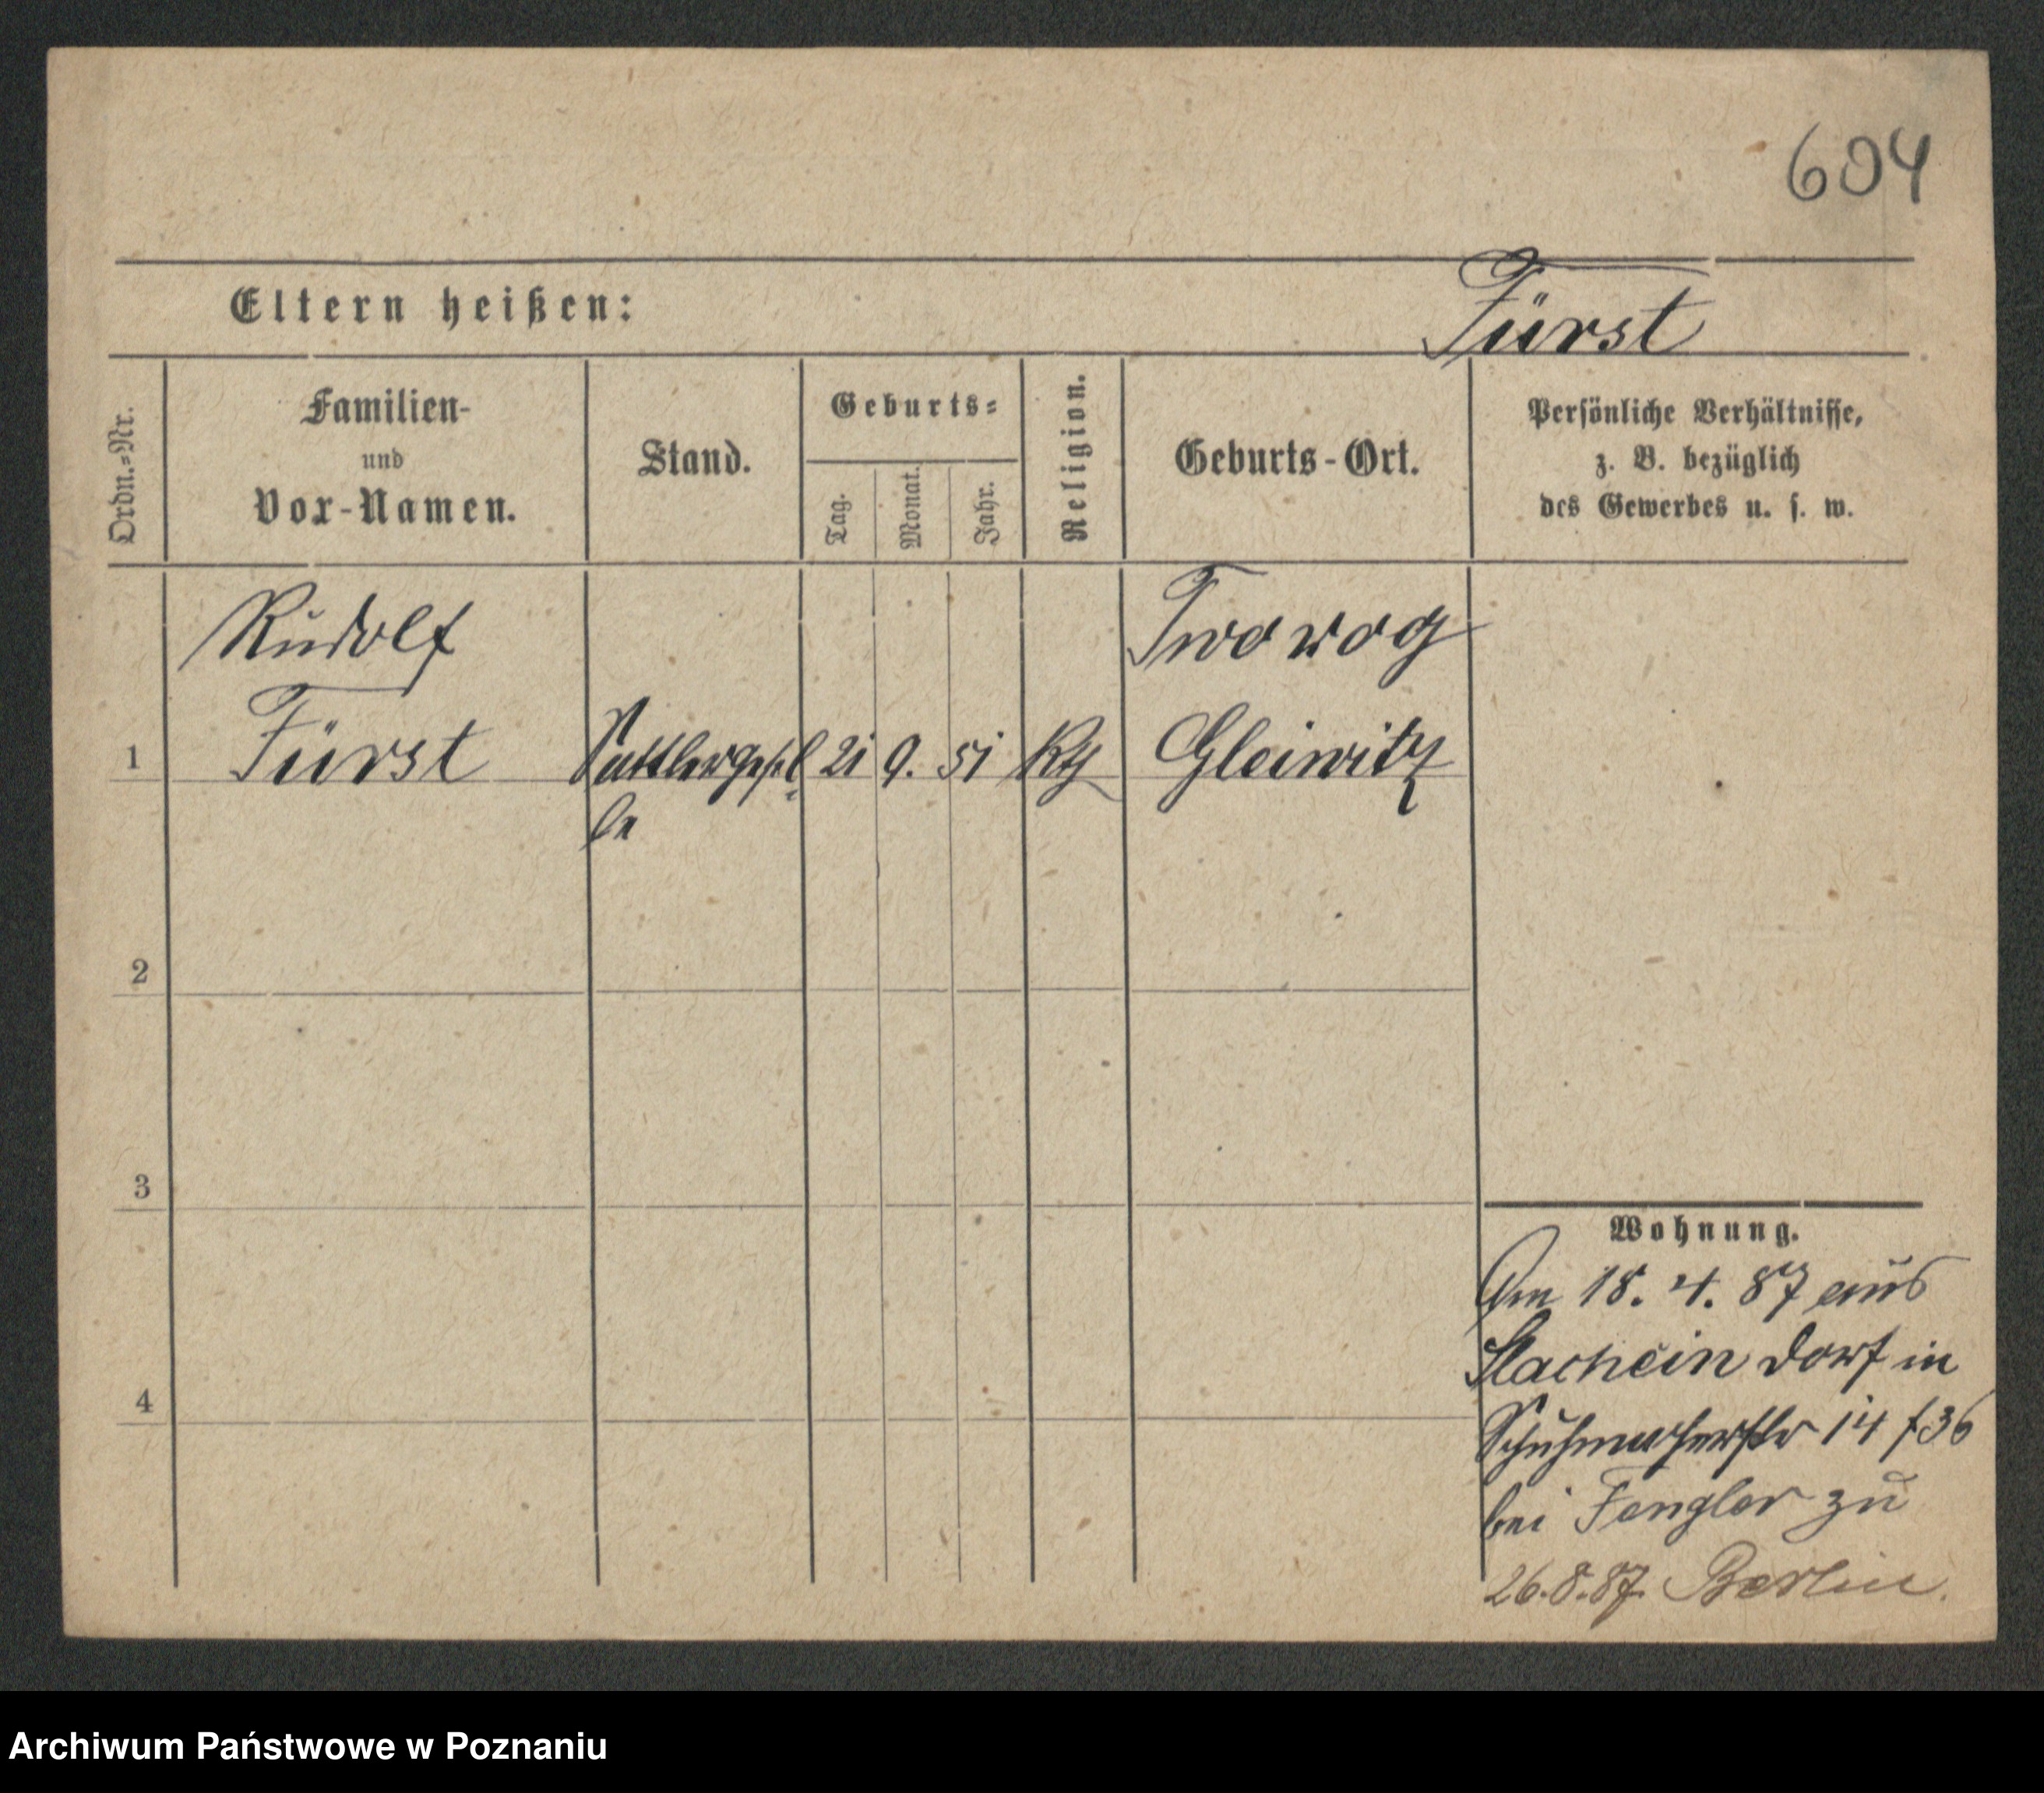 604
Eltern heißen:
Fürst
Ordn.-Nr.
Familien-
und
Vor-Namen.
Stand.
Geburts-
Tag.
Monat.
Jahr.
Religion.
Geburts-Ort.
Persönliche Verhältnisse,
z. B. bezüglich
des Gewerbes u. s. w.
Rudolf
Tworog
1 Fürst Sattlergesel 21 9. 51 Kth Gleiwitz
le
2
3
4
Wohnung.
Am 18. 4. 87 aus
dorf in
Schuhmacherstr 14 f 36
bei Fengler zu
26.8.87. Berlin.
Archiwum Państwowe w Poznaniu